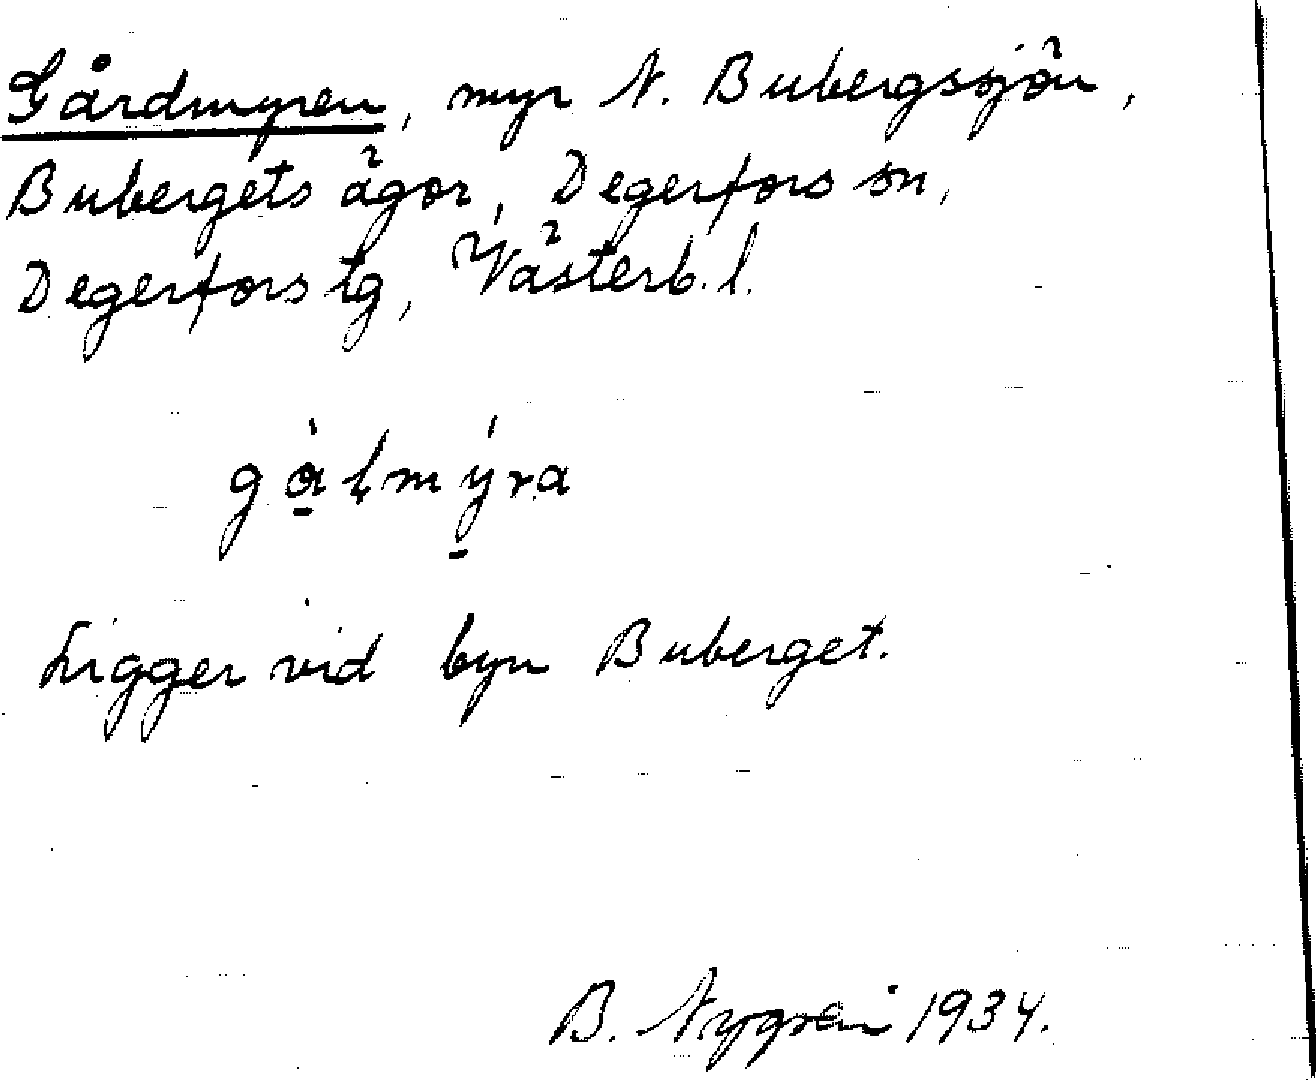 Gårdmyren, myr N. Bubergssjön,
Bubergets ägor, Degerfors sn,
Degerfors tg, Västerb. l.
gà̱ḷmý̱ra
Ligger vid byn Buberget.
B. Nygren 1934.